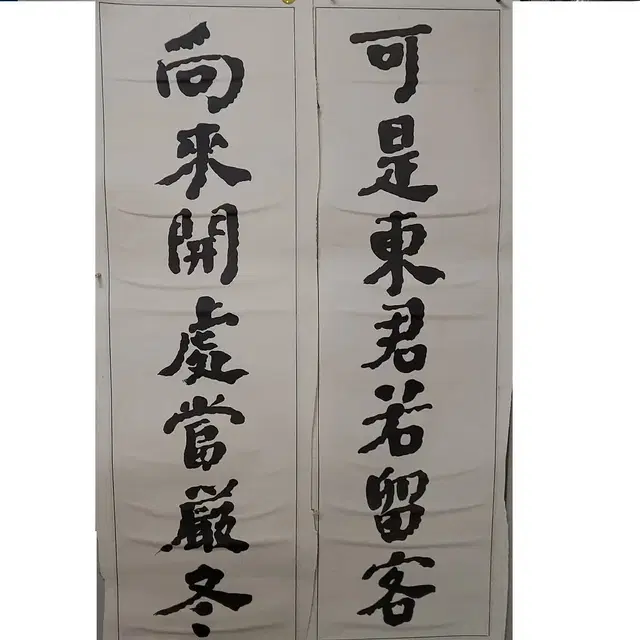 可是東君若留客
向來開處當嚴冬